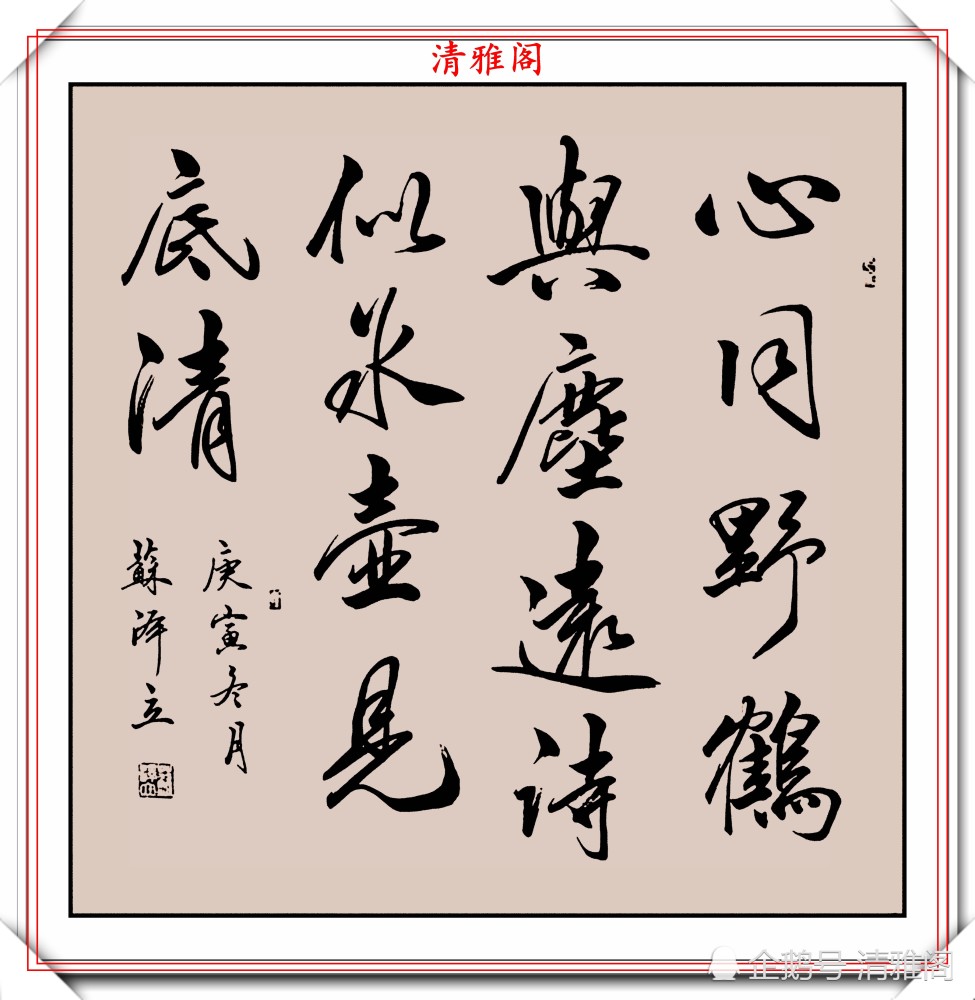 清雅阁
心同野鶴
與塵遠詩
似冰壺見
底清
庚寅冬月
蘇澤立
企鹅号 清雅阁